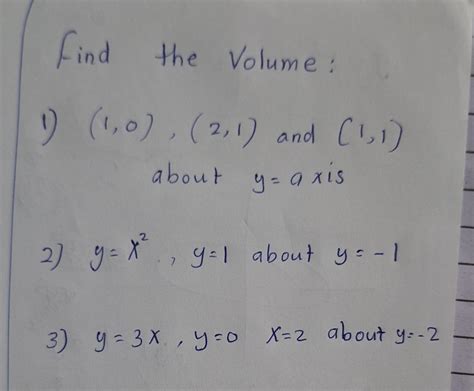 Find the Volume:
1) (1,0), (2,1) and (1,1)
about y=axis
2) y=x², y=1 about y=-1
3) y=3x, y=0 x=2 about y=-2